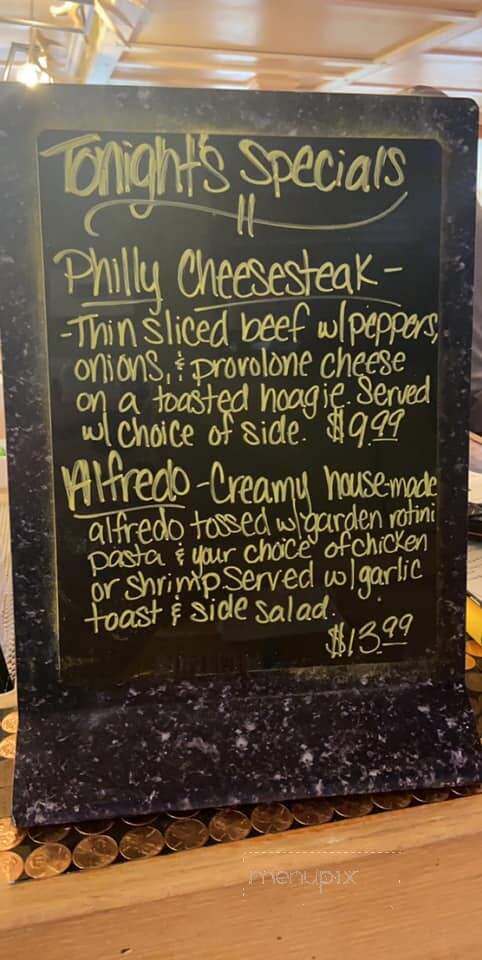 Tonight's Specials
Philly Cheesesteak -
- Thin sliced beef w/peppers,
onions, & provolone cheese
on a toasted hoagie. Served
w/ choice of side. $9.99
Alfredo - Creamy house-made
alfredo tossed w/garden rotini
pasta & your choice of chicken
or shrimp served w/garlic
toast & side salad.
$13.99
menupix